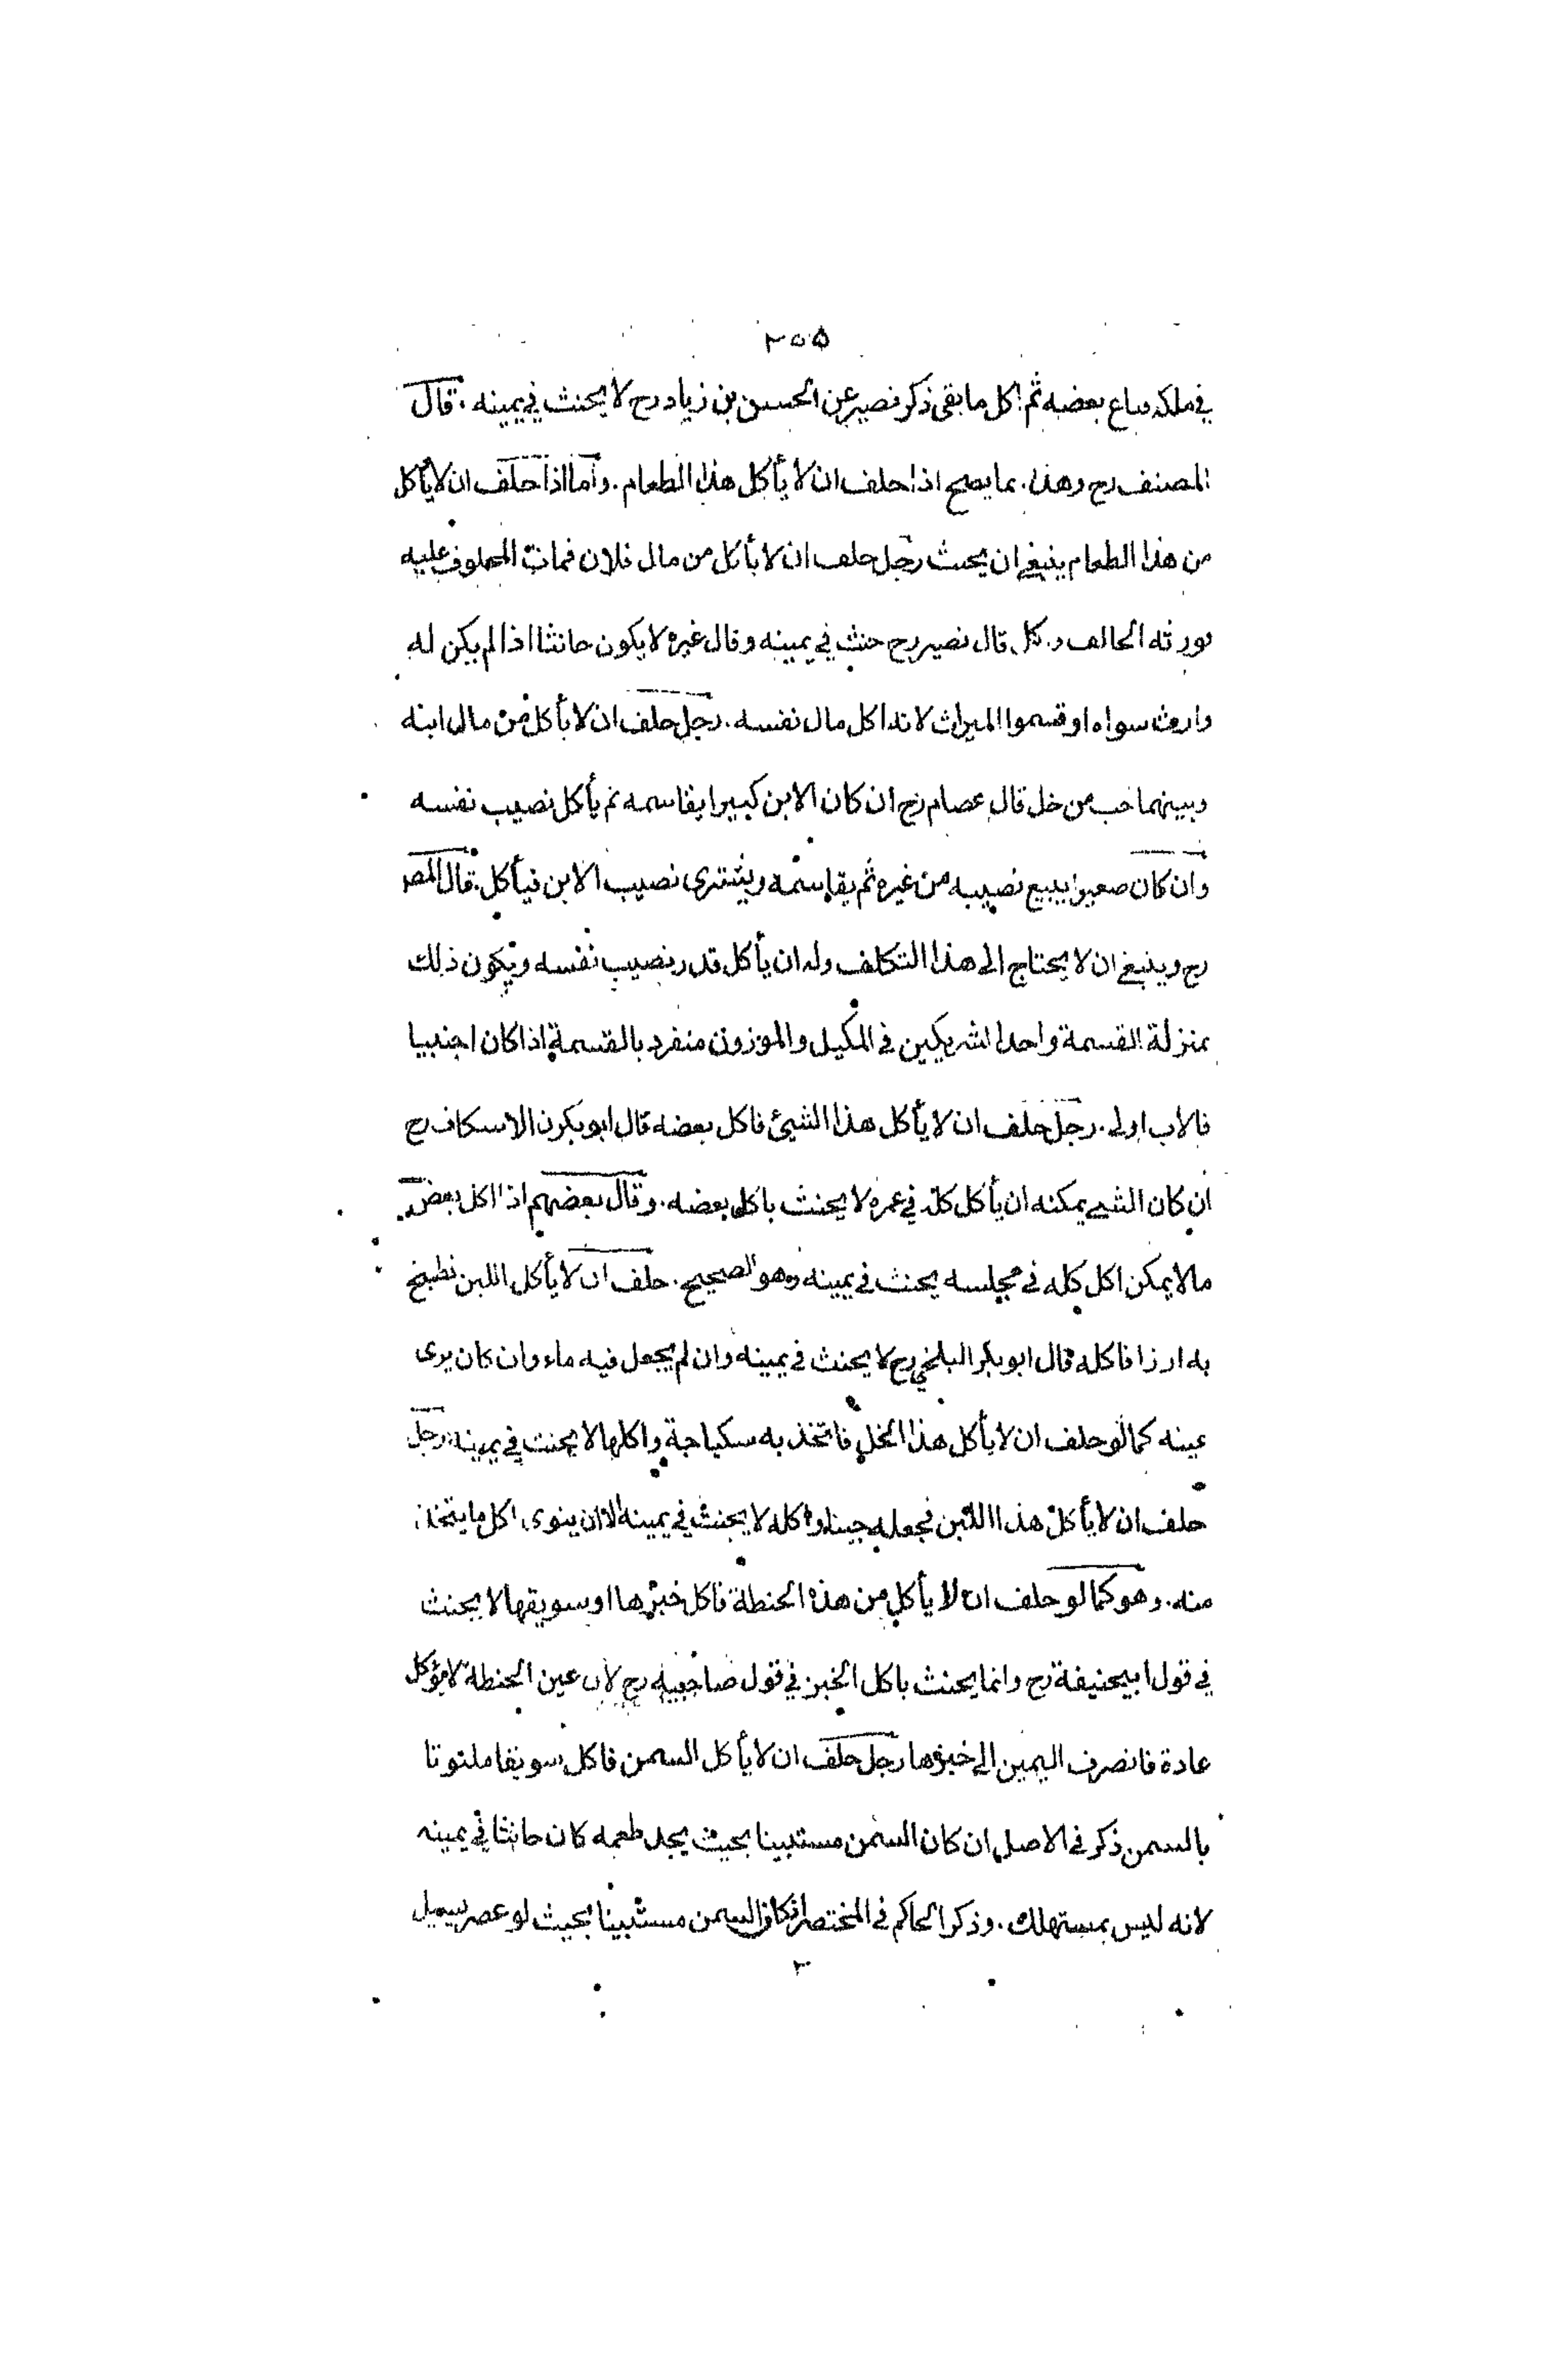 ٢٥٥
في ملكه فباع بعضه ثم اكل ما بقي ذكر نصير عن الحسن بن زياد رح لا يحنث في يمينه . قال
المصنف رح وهذا . مما يصح اذا حلف ان لا يأكل هذا الطعام . وأما اذا حلف ان لا يأكل
من هذا الطعام ينبغي ان يحنث رجل حلف ان لا يأكل من مال فلان فمات المحلوف عليه
فورثه الحالف واكل قال نصير رح حنث في يمينه وقال غيره لا يكون حانثا اذا لم يكن له
وارث سواه او قسموا الميراث لانه اكل مال نفسه . رجل حلف ان لا يأكل من مال ابنه
وبينهما حب من خل قال عصام رح ان كان الابن كبيرا يقاسمه ثم يأكل نصيب نفسه
وان كان صغيرا يبيع نصيبه من غيره ثم يقاسمه ويشترى نصيب الابن فيأكل . قال المص
رح وينبغي ان لا يحتاج الى هذا التكلف وله ان يأكل قدر نصيب نفسه ويكون ذلك
بمنزلة القسمة واحد الشريكين في المكيل والموزون منفرد بالقسمة اذا كان اجنبيا
فالاب اولى . رجل حلف ان لا يأكل هذا الشيئ فاكل بعضه قال ابو بكرن الاسكاف رح
ان كان الشيء يمكنه ان يأكل كله في عمره لا يحنث باكل بعضه . وقال بعضهم اذا اكل بعض
ما لا يمكن اكل كله في مجلسه يحنث في يمينه وهو الصحيح . حلف ان لا يأكل اللبن فطبخ
به ارزا فاكله قال ابو بكر البلخي رح لا يحنث في يمينه وان لم يجعل فيه ماء وان كان يرى
عينه كما لو حلف ان لا يأكل هذا الخل فاتخذ به سكباجة واكلها لا يحنث في يمينه . رجل
حلف ان لا يأكل هذا اللبن فجعله جبنا واكله لا يحنث في يمينه الا ان ينوى اكل ما يتخذ
منه . وهو كما لو حلف ان لا يأكل من هذه الحنطة فاكل خبزها او سويقها لا يحنث
في قول ابيحنيفة رح وانما يحنث باكل الخبز في قول صاحبيه رح لان عين الحنطة لا يؤكل
عادة فانصرف اليمين الى خبزها رجل حلف ان لا يأكل السمن فاكل سويقا ملتوتا
بالسمن ذكر في الاصل ان كان السمن مستبينا بحيث يجد طعمه كان حانثا في يمينه
لانه ليس بمستهلك . وذكر الحاكم في المختصر ان كان السمن مستبينا بحيث لو عصر يسيل